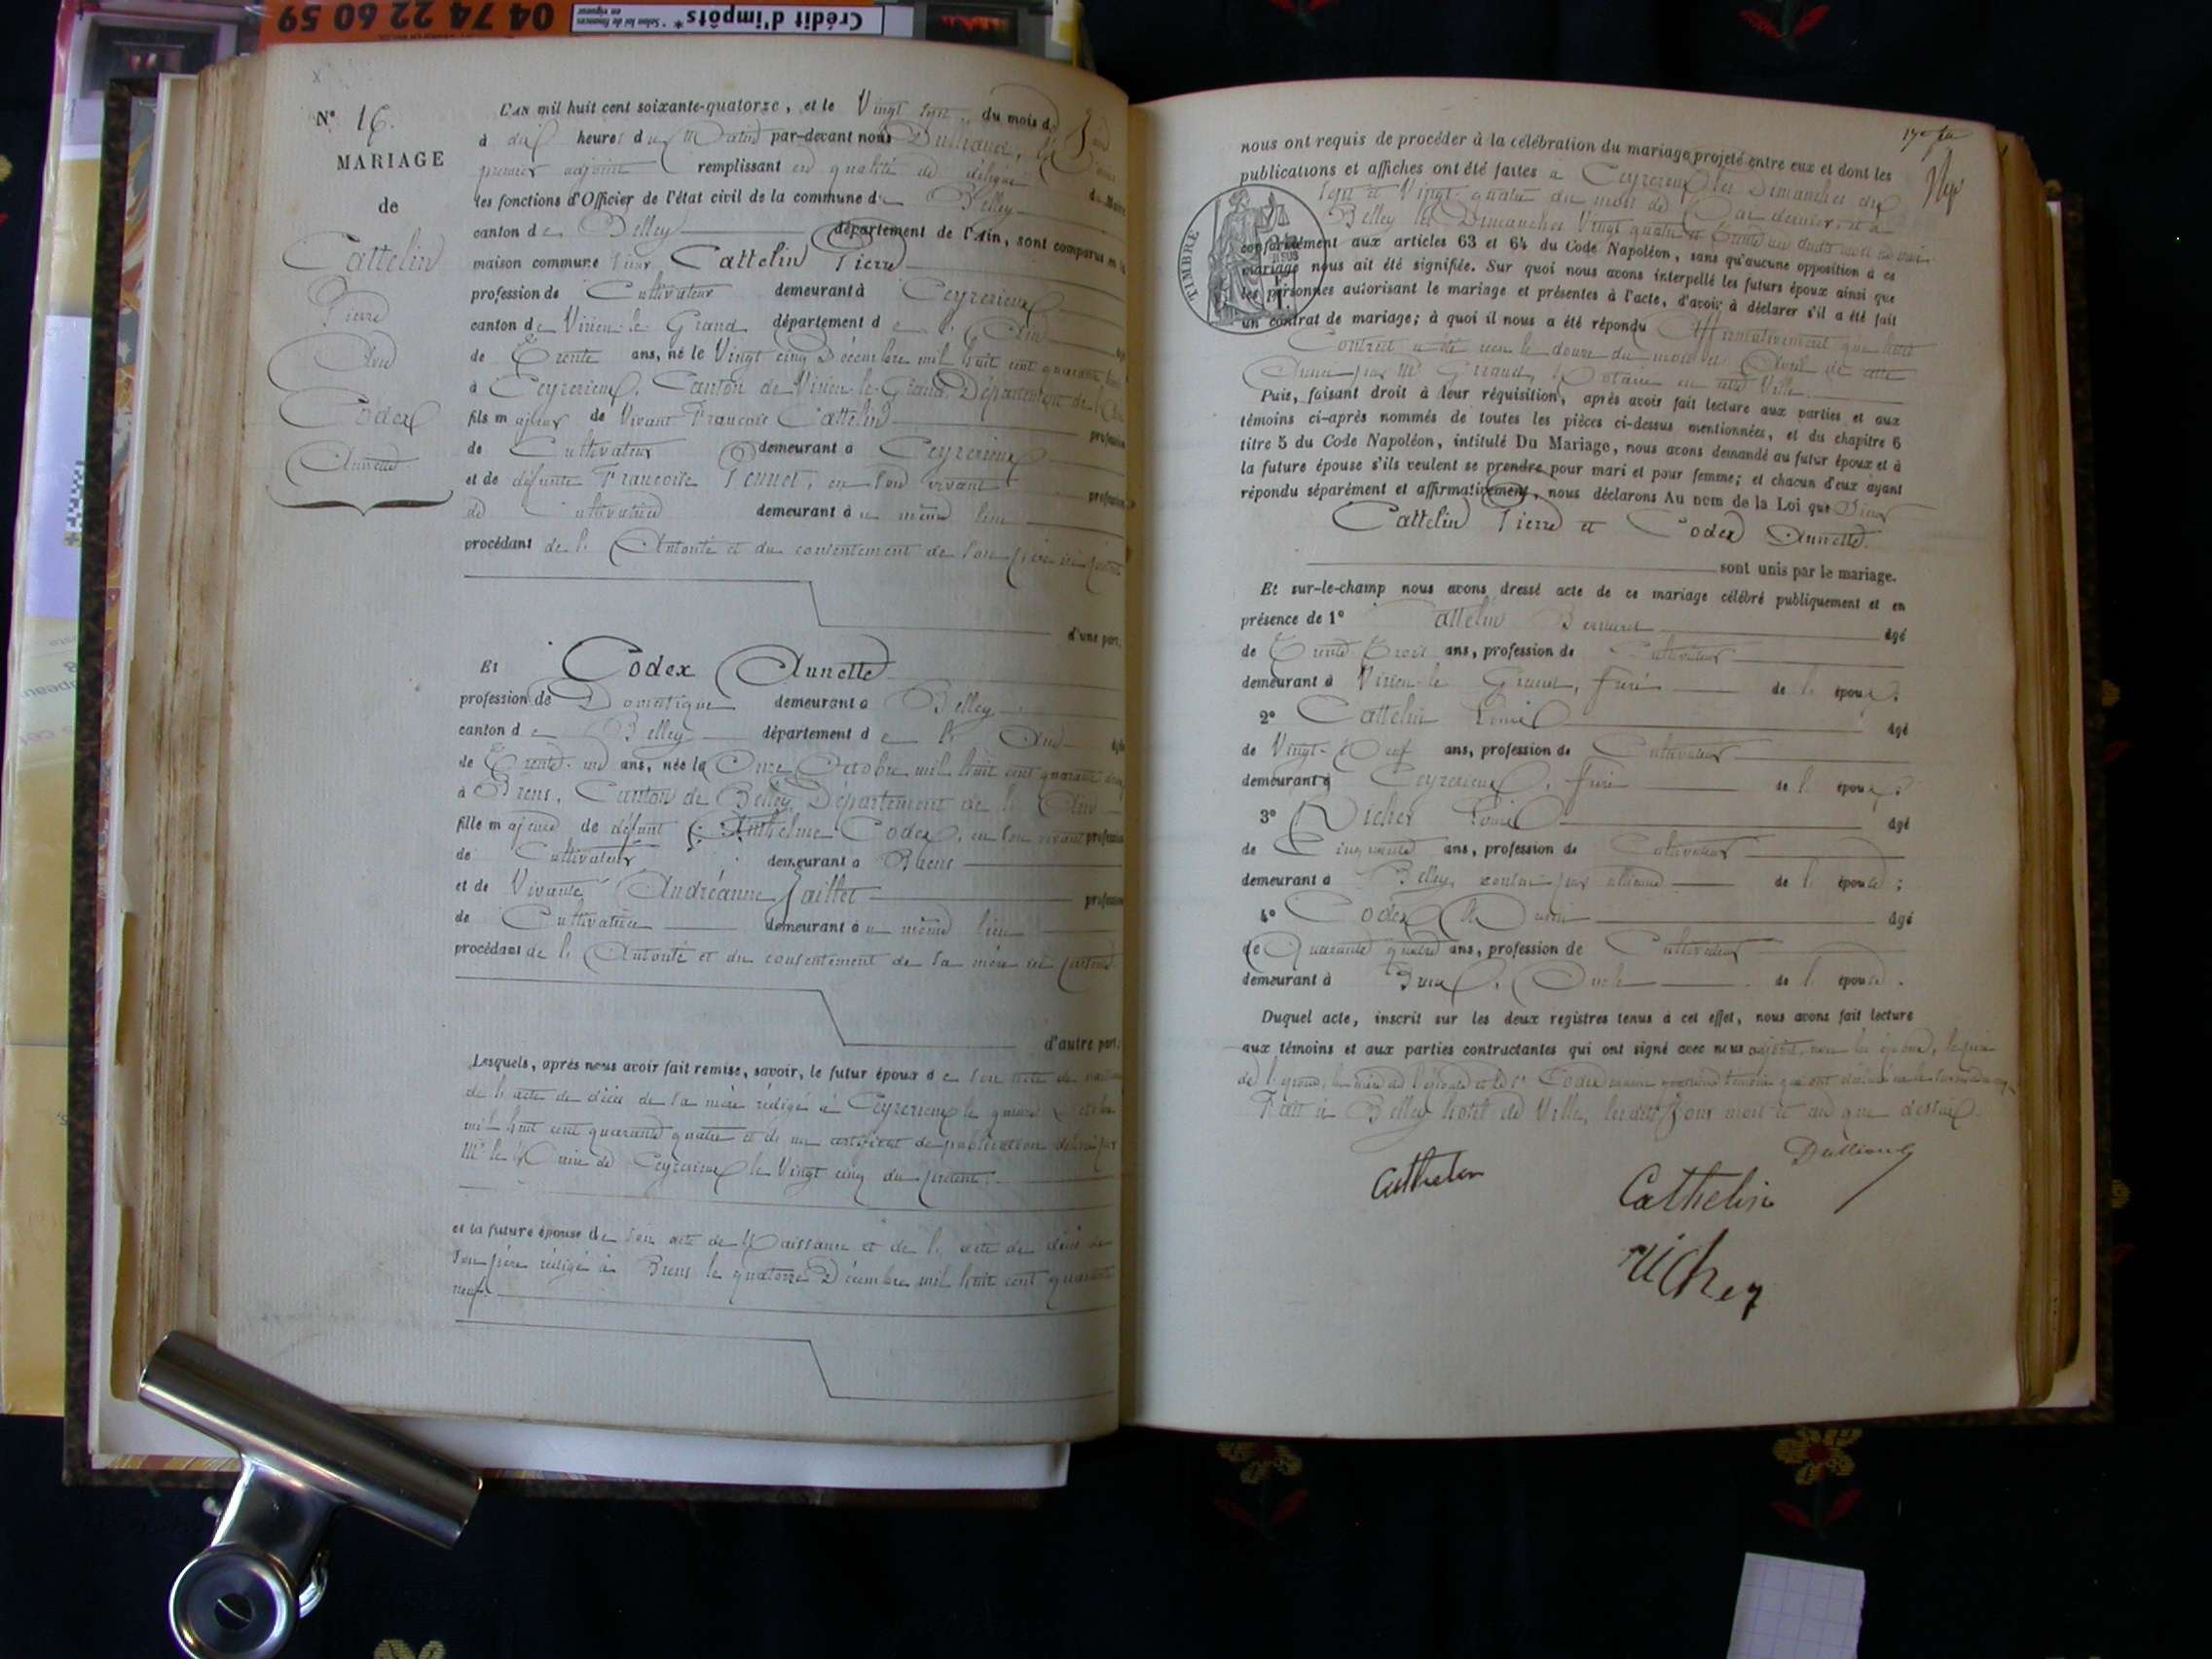 04 74 22 60 59
Crédit d'impôts*
* Selon loi de finances en vigueur
N° 16.
MARIAGE
de
Cattelin
Pierre
Codex
Annette
L'AN mil huit cent soixante-quatorze, et le Vingt du mois de
à dix heures du Matin par-devant nous
premier adjoint remplissant en qualité de délégué du Maire
les fonctions d'Officier de l'état civil de la commune de Belley
canton de Belley département de l'Ain, sont comparus en la
maison commune Cattelin Pierre
profession de Cultivateur demeurant à Ceyzerieux
canton de Virieu-le-Grand département de l'Ain
de Trente ans, né le Vingt cinq Décembre mil huit cent quarante
à Ceyzerieux, Canton de Virieu-le-Grand, Département de l'Ain
fils majeur de Vivant François Cattelin profession
de Cultivateur demeurant à Ceyzerieux
et de défunte Françoise en son vivant profession
de Cultivatrice demeurant au même lieu
procédant de l'Autorité et du consentement de son père ici présent
d'une part.
Et Codex Annette
profession de Domestique demeurant à Belley
canton de Belley département de l'Ain
de Trente-un ans, née le Onze Octobre mil huit cent quarante
à Brens, Canton de Belley, Département de l'Ain
fille majeure de défunt Anthelme Codex, en son vivant profession
de Cultivateur demeurant à Brens
et de Vivante Andréanne Jaillet profession
de Cultivatrice demeurant au même lieu
procédant de l'Autorité et du consentement de sa mère ici présente
d'autre part.
Lesquels, après nous avoir fait remise, savoir, le futur époux de son acte de naissance
de l'acte de décès de sa mère rédigé à Ceyzerieux le quinze Octobre
mil huit cent quarante quatre et de un certificat de publication délivré par
Mr le Maire de Ceyzerieux le Vingt cinq du présent.
et la future épouse de son acte de Naissance et de l'acte de décès de
son père rédigé à Brens le quatorze Décembre mil huit cent quarante
neuf.
nous ont requis de procéder à la célébration du mariage projeté entre eux et dont les
publications et affiches ont été faites à Ceyzerieux les Dimanches dix
sept et Vingt-quatre du mois de Mai dernier, et à
Belley les Dimanches Vingt quatre et Trente un dudit mois de mai
conformément aux articles 63 et 64 du Code Napoléon, sans qu'aucune opposition à ce
mariage nous ait été signifiée. Sur quoi nous avons interpellé les futurs époux ainsi que
les personnes autorisant le mariage et présentes à l'acte, d'avoir à déclarer s'il a été fait
un contrat de mariage; à quoi il nous a été répondu Affirmativement que leur
Contrat a été reçu le douze du mois de Avril de cette
Année par Mr Girand, Notaire en cette Ville.
TIMBRE
Puis, faisant droit à leur réquisition, après avoir fait lecture aux parties et aux
témoins ci-après nommés de toutes les pièces ci-dessus mentionnées, et du chapitre 6
titre 5 du Code Napoléon, intitulé Du Mariage, nous avons demandé au futur époux et à
la future épouse s'ils veulent se prendre pour mari et pour femme; et chacun d'eux ayant
répondu séparément et affirmativement, nous déclarons Au nom de la Loi que
Cattelin Pierre et Codex Annette
sont unis par le mariage.
Et sur-le-champ nous avons dressé acte de ce mariage célébré publiquement et en
présence de 1° Cattelin Bernard âgé
de Trente-Trois ans, profession de Cultivateur
demeurant à Virieu-le Grand, frère de l'époux;
2° Cattelin Louis âgé
de Vingt-Neuf ans, profession de Cultivateur
demeurant à Ceyzerieux, frère de l'époux;
3° Richer Louis âgé
de Cinquante ans, profession de Cultivateur
demeurant à Belley, cousin par alliance de l'épouse;
4° Codex âgé
de Quarante quatre ans, profession de Cultivateur
demeurant à Oncle de l'épouse.
Duquel acte, inscrit sur les deux registres tenus à cet effet, nous avons fait lecture
aux témoins et aux parties contractantes qui ont signé avec nous
de l'époux, la mère de l'épouse et le Sr Codex quatrième témoin qui ont déclaré ne le savoir
Fait à Belley hôtel de Ville, lesdits jour mois et an que dessus.
Cathelin
Cathelin
richer